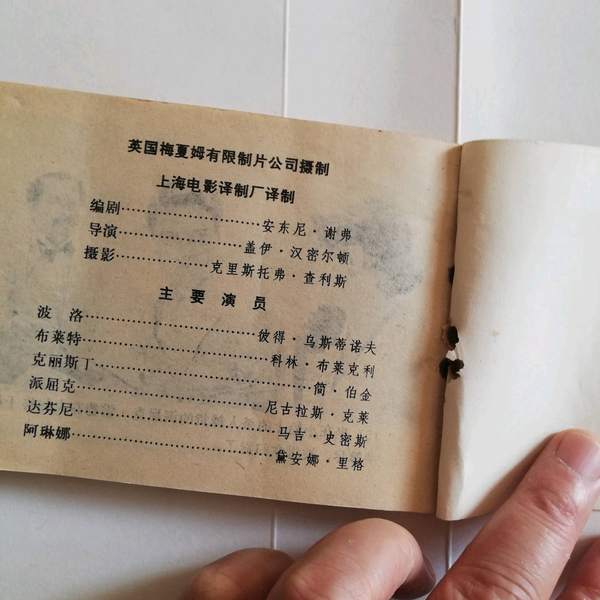 英国梅夏姆有限制片公司摄制
上海电影译制厂译制
编剧……………………安东尼·谢弗
导演……………………盖伊·汉密尔顿
摄影………………克里斯托弗·查利斯
主要演员
波洛……………………彼得·乌斯蒂诺夫
布莱特……………………科林·布莱克利
克丽斯丁……………………简·伯金
派屈克……………………尼古拉斯·克莱
达芬尼……………………马吉·史密斯
阿琳娜……………………黛安娜·里格